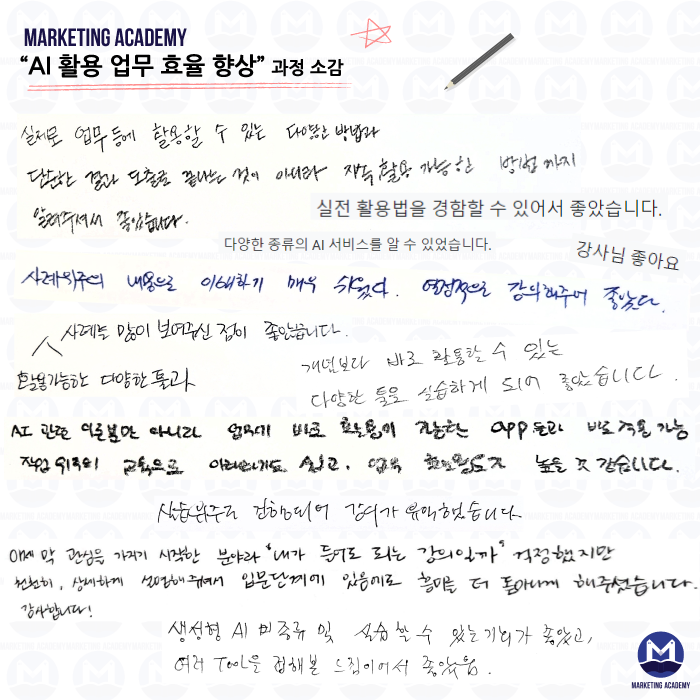 MARKETING ACADEMY
“AI 활용 업무 효율 향상” 과정 소감
실제로 업무 등에 활용할 수 있는 다양한 방법과
단순한 결과 도출로 끝나는 것이 아니라 계속 활용 가능한 방법까지
알려주셔서 좋았습니다.
실전 활용법을 경함할 수 있어서 좋았습니다.
다양한 종류의 AI 서비스를 알 수 있었습니다.
강사님 좋아요
사례위주의 내용으로 이해하기 매우 쉬웠다. 열정적으로 강의해주어 좋았다.
사례를 많이 보여주신 점이 좋았습니다.
활용가능한 다양한 툴과
개념보다 바로 활용할 수 있는
다양한 툴로 실습하게 되어 좋았습니다.
AI 관련 이론뿐만 아니라 업무에 바로 활용이 가능한 app들과 바로 적용 가능
작업 위주의 교육으로 이해하기도 쉽고, 업무 활용도도 높을 것 같습니다.
실습위주로 진행되어 강의가 유익했습니다.
이제 막 관심을 가지기 시작한 분야라 "내가 들어도 되는 강의일까" 걱정했지만
천천히, 상세하게 설명해주셔서 입문단계에 있음에도 흥미를 더 돋아나게 해주셨습니다.
감사합니다!
생성형 AI 및 종류 및 실습할 수 있는 기회가 좋았고,
여러 Tool을 접해본 느낌이어서 좋았음.
MARKETING ACADEMY